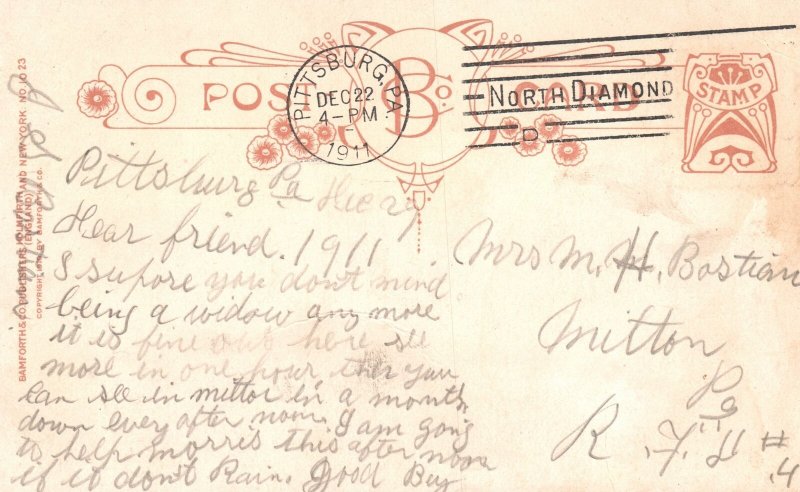 POST CARD
B Co.
PITTSBURG, PA.
DEC 22
4-PM
1911
NORTH DIAMOND
D
STAMP
BAMFORTH & CO. PUBLISHERS (ENGLAND) AND NEW YORK. NO. 1023
COPYRIGHT BY BAMFORTH & CO.
Pittsburg Pa Dec 22
Dear friend. 1911
I supore you don't mind
being a widow any more
it is fine out here see
more in one hour then you
can see in mitton in a month
down every after noon. I am going
to help morris this after noon
if it don't Rain. Good Buy
Mrs M. H. Bostian
Milton
Pa
R.F.D #
.4